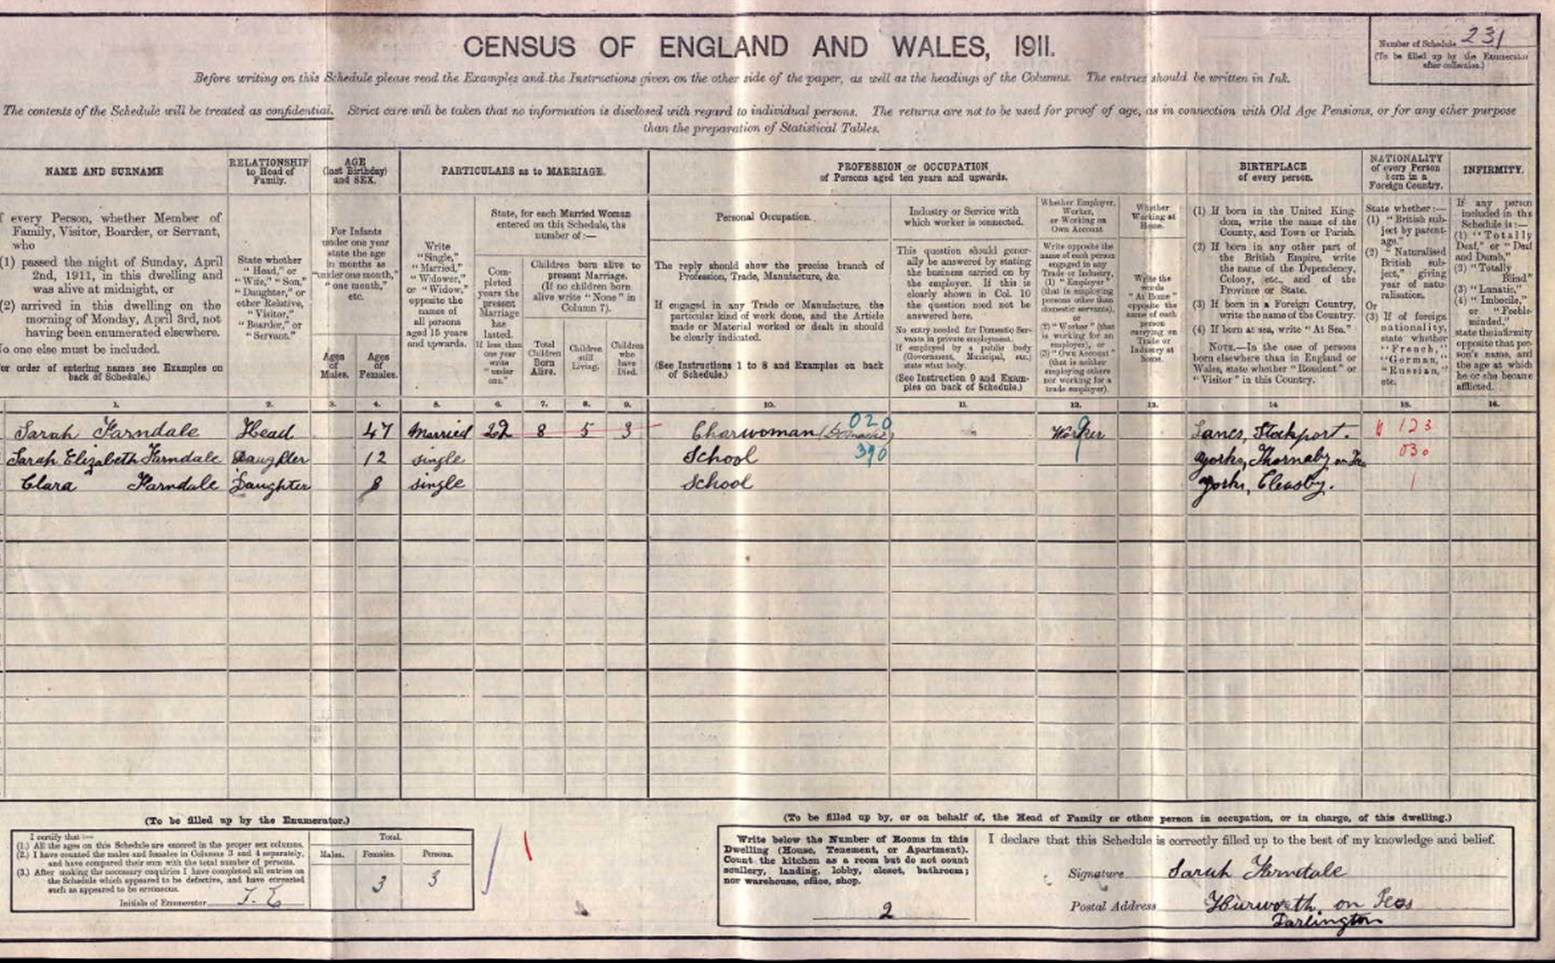 CENSUS OF ENGLAND AND WALES, 1911.
Number of Schedule 231
(To be filled up by the Enumerator
after collection.)
Before writing on this Schedule please read the Examples and the Instructions given on the other side of the paper, as well as the headings of the Columns. The entries should be written in Ink.
The contents of the Schedule will be treated as confidential. Strict care will be taken that no information is disclosed with regard to individual persons. The returns are not to be used for proof of age, as in connection with Old Age Pensions, or for any other purpose
than the preparation of Statistical Tables.
NAME AND SURNAME
RELATIONSHIP
to Head of
Family.
AGE
(last Birthday)
and SEX.
PARTICULARS as to MARRIAGE.
PROFESSION or OCCUPATION
of Persons aged ten years and upwards.
BIRTHPLACE
of every person.
NATIONALITY
of every Person
born in a
Foreign Country.
INFIRMITY.
f every Person, whether Member of
Family, Visitor, Boarder, or Servant,
who
(1) passed the night of Sunday, April
2nd, 1911, in this dwelling and
was alive at midnight, or
(2) arrived in this dwelling on the
morning of Monday, April 3rd, not
having been enumerated elsewhere.
No one else must be included.
For order of entering names see Examples on
back of Schedule.)
State whether
"Head," or
"Wife," "Son,"
"Daughter," or
other Relative,
"Visitor,"
"Boarder," or
"Servant."
For Infants
under one year
state the age
in months as
"under one month,"
"one month,"
etc.
Ages
of
Males.
Ages
of
Females.
Write
"Single,"
"Married,"
"Widower,"
or "Widow,"
opposite the
names of
all persons
aged 15 years
and upwards.
State, for each Married Woman
entered on this Schedule, the
number of:—
Completed
years the
present
Marriage
has
lasted.
If less than
one year
write
"under
one."
Children born alive to
present Marriage.
(If no children born
alive write "None" in
Column 7).
Total
Children
Born
Alive.
Children
still
Living.
Children
who
have
Died.
Personal Occupation.
The reply should show the precise branch of
Profession, Trade, Manufacture, &c.
If engaged in any Trade or Manufacture, the
particular kind of work done, and the Article
made or Material worked or dealt in should
be clearly indicated.
(See Instructions 1 to 8 and Examples on back
of Schedule.)
Industry or Service with
which worker is connected.
This question should generally
be answered by stating
the business carried on by
the employer. If this is
clearly shown in Col. 10
the question need not be
answered here.
No entry needed for Domestic Servants
in private employment.
If employed by a public body
(Government, Municipal, etc.)
state what body.
(See Instruction 9 and Examples
on back of Schedule.)
Whether Employer,
Worker,
or Working on
Own Account
Write opposite the
name of each person
engaged in any
Trade or Industry,
(1) "Employer"
(that is employing
persons other than
domestic servants),
or
(2) "Worker" (that
is working for an
employer), or
(3) "Own Account"
(that is neither
employing others
nor working for a
trade employer).
Whether
Working at
Home.
Write the
words
"At Home"
opposite the
name of each
person
carrying on
Trade or
Industry at
home.
(1) If born in the United Kingdom,
write the name of the
County, and Town or Parish.
(2) If born in any other part of
the British Empire, write
the name of the Dependency,
Colony, etc., and of the
Province or State.
(3) If born in a Foreign Country,
write the name of the Country.
(4) If born at sea, write "At Sea."
NOTE.—In the case of persons
born elsewhere than in England or
Wales, state whether "Resident" or
"Visitor" in this Country.
State whether:—
(1) "British subject
by parentage."
(2) "Naturalised
British subject,"
giving
year of naturalisation.
Or
(3) If of foreign
nationality,
state whether
"French,"
"German,"
"Russian,"
etc.
If any person
included in this
Schedule is:—
(1) "Totally
Deaf," or "Deaf
and Dumb,"
(2) "Totally
Blind"
(3) "Lunatic,"
(4) "Imbecile,"
or "Feeble-
minded,"
state the infirmity
opposite that person's
name, and
the age at which
he or she became
afflicted.
1. 2. 3. 4. 5. 6. 7. 8. 9. 10. 11. 12. 13. 14 15. 16.
Sarah Farndale Head 47 Married 22 8 5 3 Charwoman 020 Worker Lancs, Stockport. 123
Sarah Elizabeth Farndale Daughter 12 single School 390 Yorks, Thornaby on Tees 030
Clara Farndale Daughter 8 single School Yorks, Cleasby. 1
(To be filled up by the Enumerator.)
I certify that:—
(1.) All the ages on this Schedule are entered in the proper sex columns.
(2.) I have counted the males and females in Columns 3 and 4 separately,
and have compared their sum with the total number of persons.
(3.) After making the necessary enquiries I have completed all entries on
the Schedule which appeared to be defective, and have corrected
such as appeared to be erroneous.
Initials of Enumerator
Total.
Males. Females. Persons.
3 3
(To be filled up by, or on behalf of, the Head of Family or other person in occupation, or in charge, of this dwelling.)
Write below the Number of Rooms in this
Dwelling (House, Tenement, or Apartment).
Count the kitchen as a room but do not count
scullery, landing, lobby, closet, bathroom;
nor warehouse, office, shop.
2
I declare that this Schedule is correctly filled up to the best of my knowledge and belief.
Signature Sarah Farndale
Postal Address Hurworth on Tees
Darlington